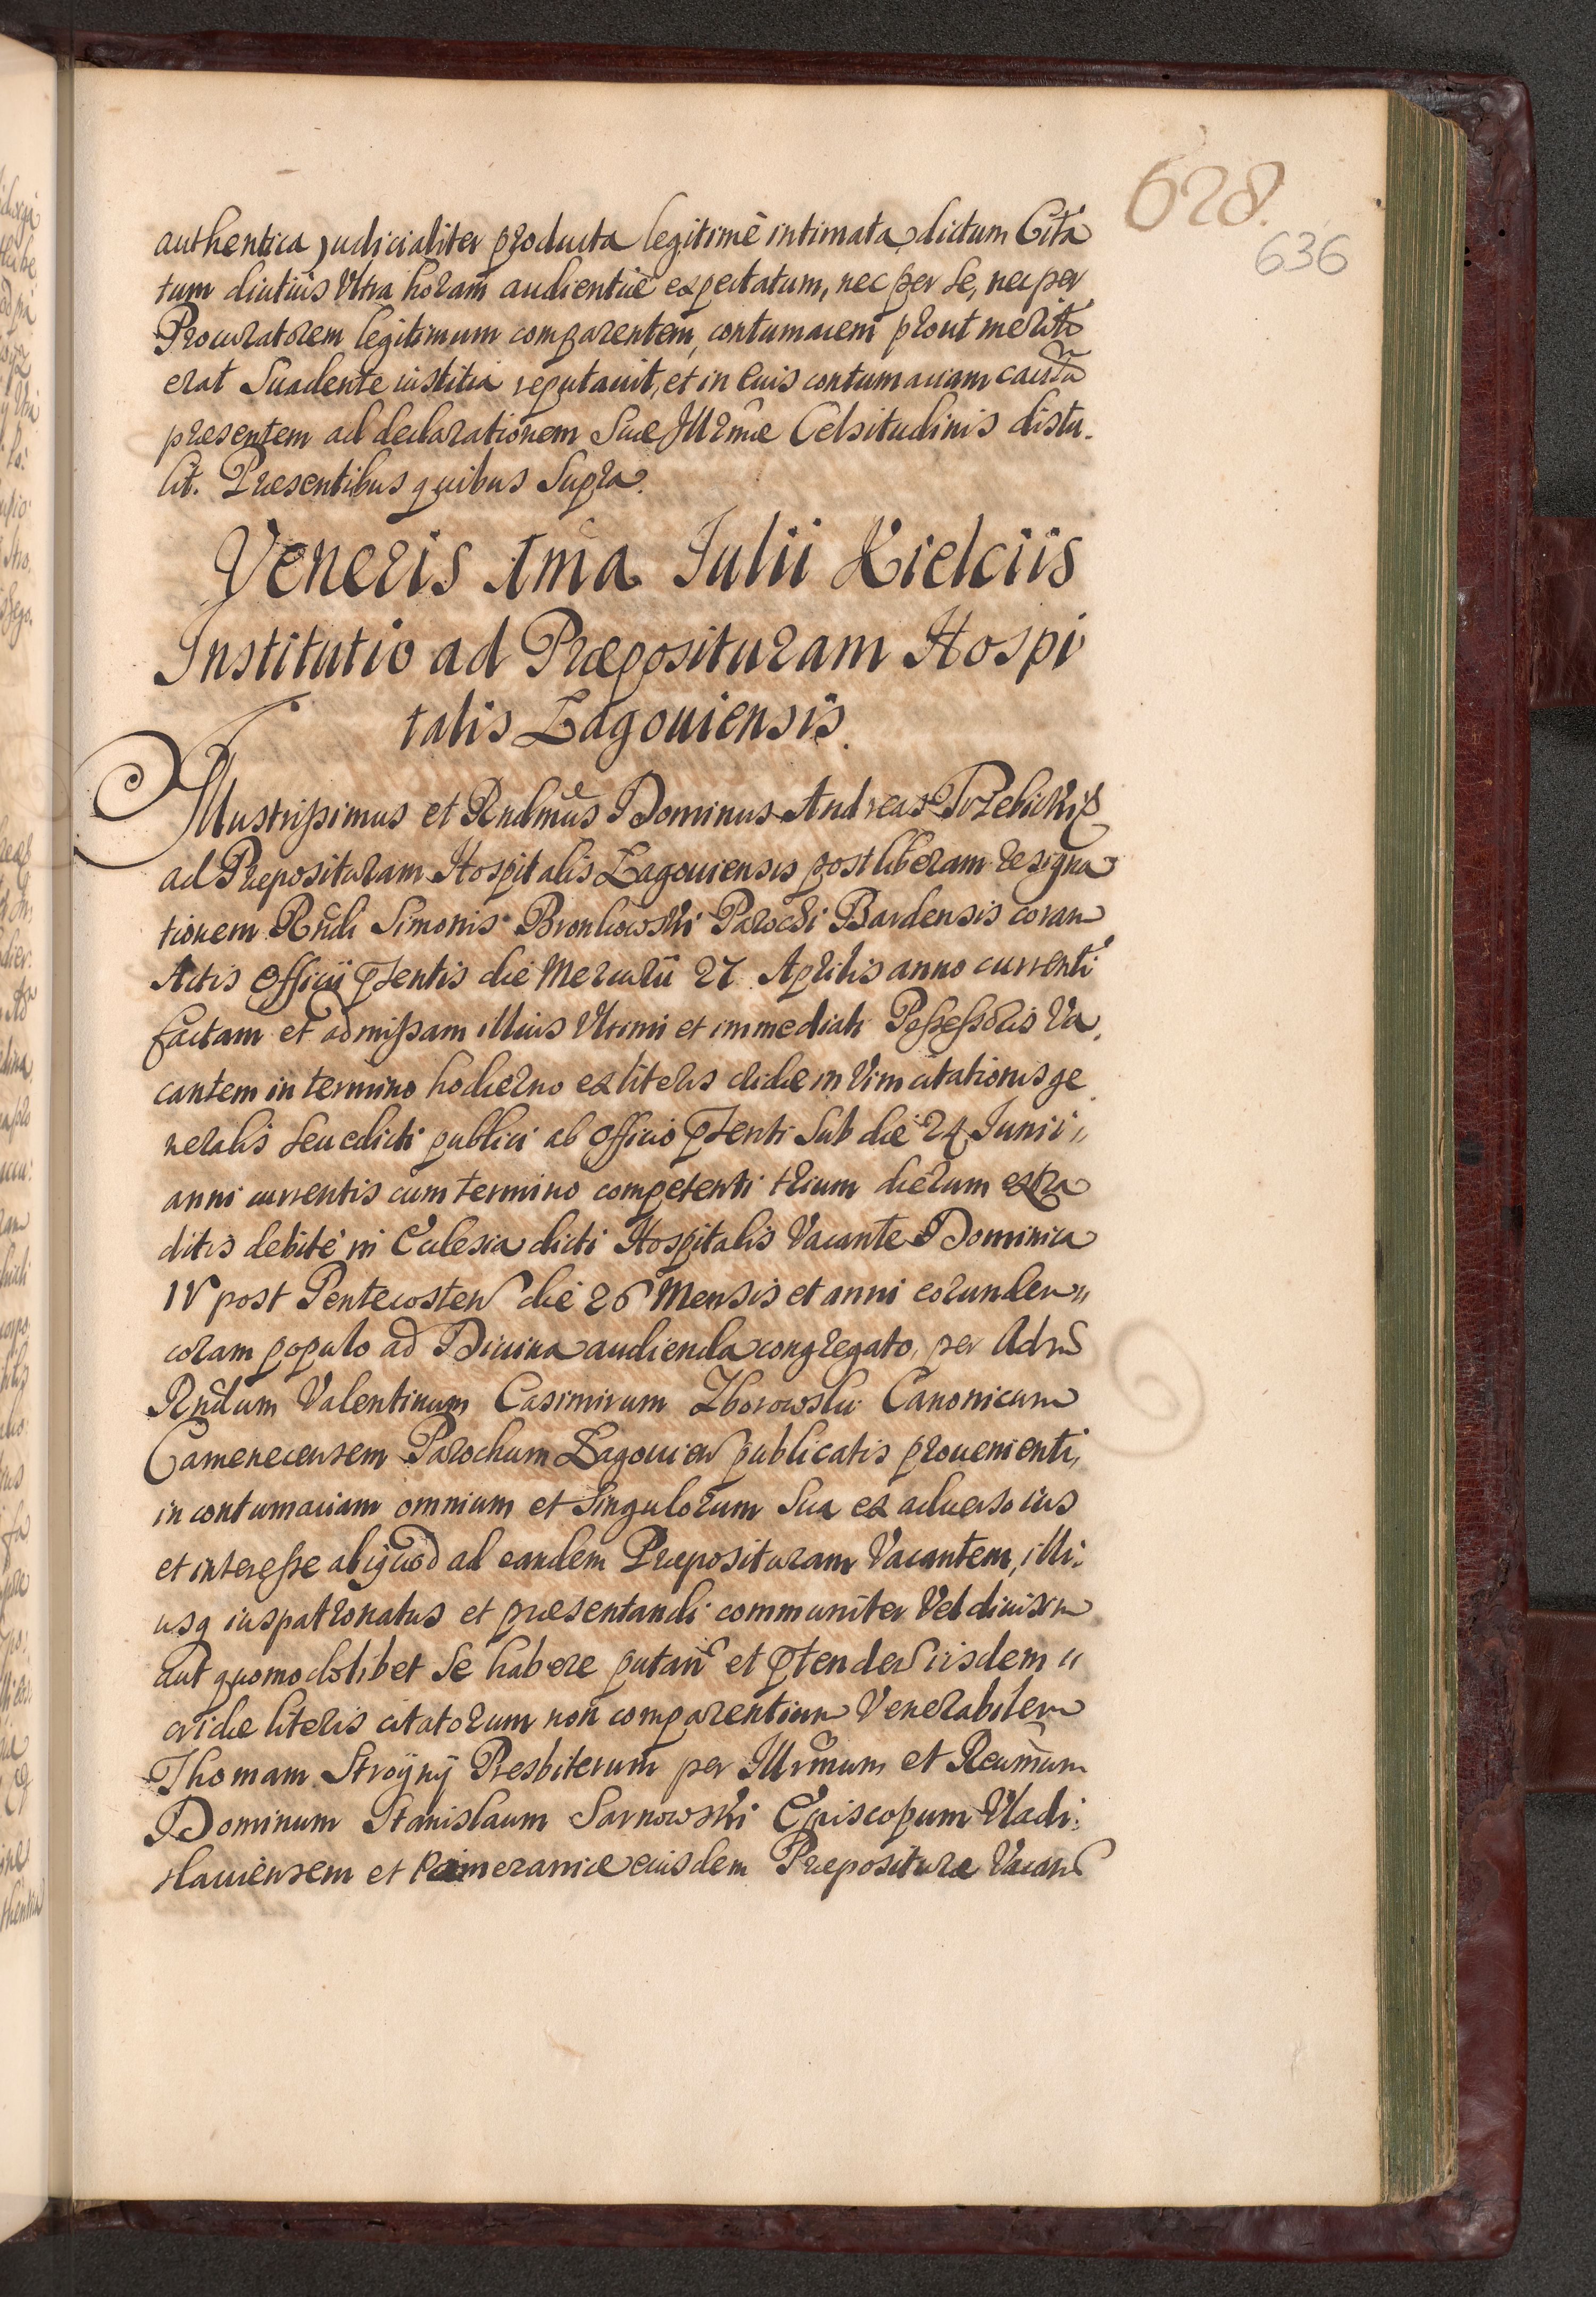 628.
636
authentica judicialiter producta legitimè intimata, dictum Cita
tum diutiùs Vltra horam audientiæ expectatum, nec per se, nec per
Procuratorem legitimum comparentem, contumacem prout meritò
erat Suadente iustitia reputauit, et in Euis contumaciam causã
præsentem ad declarationem Suæ Illrmæ Celsitudinis distu.
lit. Præsentibus quibus Supra.
Veneris 1ma Iulii Kielciis
Institutio ad Præposituram Hospi
talis Lagouiensis.
Illustrißimus et Rndmus Dominus Andreas Trzebicki Eps
ad Præposituram Hospitalis Lagouiensis post liberam resigna
tionem Rndi Simonis Bronkowski Parochi Bardensis coram
Actis Officii pſentis die Mercurii 27 Aprilis anno currenti
factam et admißam illius Vltimi et immediati Poßeßoris Va.
cantem in termino hodierno ex literis cridæ in Vim citationis ge
neralis seu edicti publici ab Officio pſenti Sub die 24 Junii
anni currentis cum termino competenti trium dierum extra
ditis debitè in Ecclesia dicti Hospitalis Vacante Dominica
IV post Pentecosten die 26 Mensis et anni eorundem
coram populo ad Diuina audienda congregato, per Adm
Rndum Valentinum Casimirum Zborowski Canonicum
Camenecensem Parochum Lagouien publicatis prouenienti,
in contumaciam omnium et Singulorum Sua ex aduerso ius
et intereße aliquod ad eandem Præposituram Vacantem, illi:
usq iuspatronatus et præsentandi communiter Vel diuisim
aut quomodolibet Se habere putan et ptenden iisdem
cridæ literis citatorum non comparentium Venerabilem
Thomam Stroyny Presbiterum per Illrmum et Reumum
Dominum Stanislaum Sarnowski Episcopum Vladi:
slauiensem et Pomeraniæ eiusdem Præposituræ Vacan